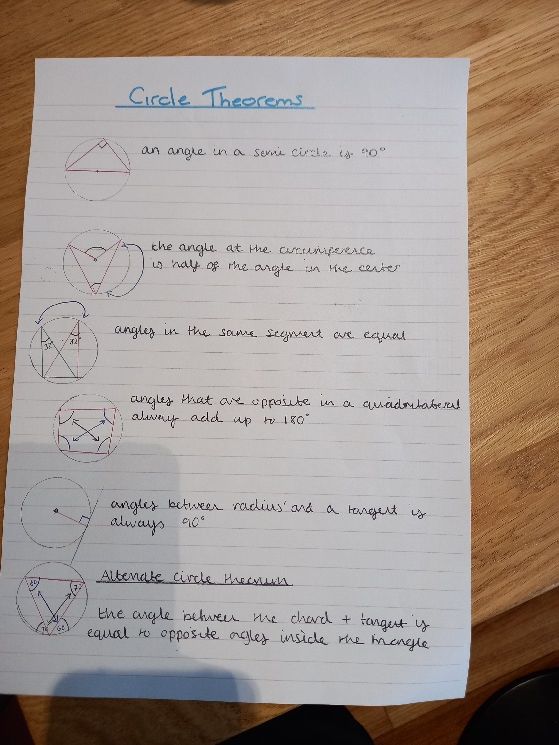 Circle Theorems
an angle in a semi circle is 90°
the angle at the circumference
is half of the angle in the center
angles in the same segment are equal
32° 32°
angles that are opposite in a quadrilateral
always add up to 180°
angles between radius and a tangent is
always 90°
Alternate circle theorum
the angle between the chord + tangent is
equal to opposite angles inside the triangle